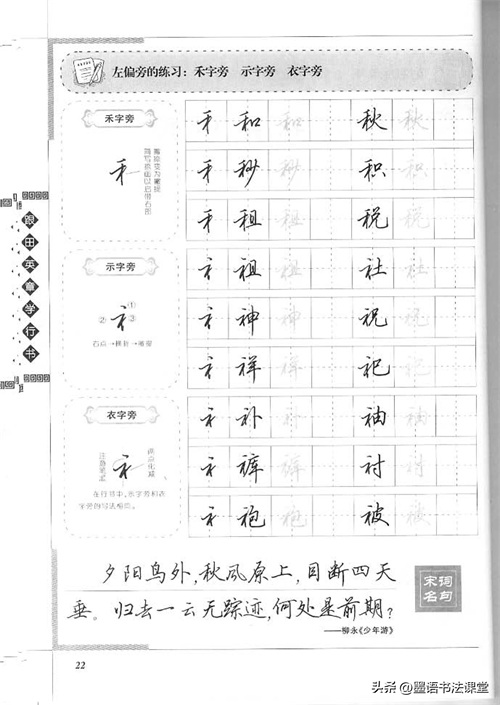 左偏旁的练习：禾字旁 示字旁 衣字旁
禾字旁
禾 和 和 秋 秋
禾 秒 秒 积 积
禾 租 租 税 税
示字旁
①
②
③
右点→横折→垂露
礻 祖 祖 社 社
礻 神 神 祝 祝
礻 祥 祥 祀 祀
衣字旁
两点化减
注意笔画
在行书中，示字旁和衣
字旁的写法相同。
衤 补 补 袖 袖
衤 裤 裤 衬 衬
衤 袍 袍 被 被
跟田英章学行书
夕阳鸟外，秋风原上，目断四天
垂。归去一云无踪迹，何处是前期？
——柳永《少年游》
宋词
名句
22
头条@墨语书法课堂